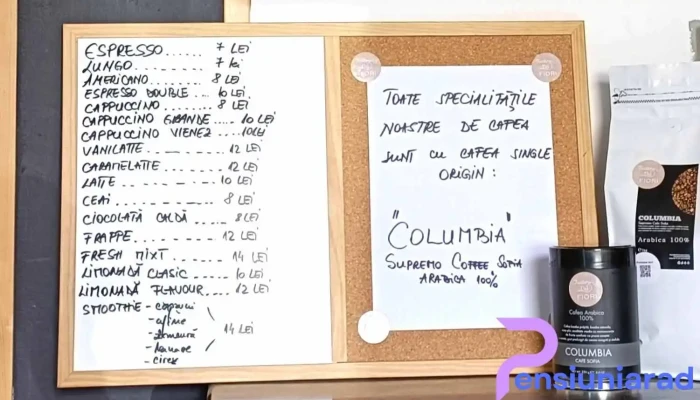 ESPRESSO...... 7 LEI
LUNGO........ 7 lei
AMERICANO..... 8 LEI
ESPRESSO DOUBLE.... 10 LEI
CAPPUCCINO........ 8 LEI
CAPPUCCINO GRANDE.... 10 LEI
CAPPUCCINO VIENEZ... 10LEI
VANILATTE........ 12 LEI
CARAMELATTE...... 12 LEI
LATTE........ 10 LEI
CEAI........ 8 LEI
CIOCOLATĂ CALDĂ..... 8 LEI
FRAPPE........ 12 LEI
FRESH MIXT...... 14 LEI
LIMONADĂ CLASIC...... 10 LEI
LIMONADĂ FLAVOUR...... 12 LEI
SMOOTHIE - căpșuni
- afine
- zmeură 14 LEI
- banane
- cireșe
TOATE SPECIALITĂȚILE
NOASTRE DE CAFEA
SUNT CU CAFEA SINGLE
ORIGIN :
"COLUMBIA"
SUPREMO COFFEE SOFIA
ARABICA 100%
COLUMBIA
Arabica 100%
Cafea Arabica
100%
COLUMBIA
CAFE SOFIA
Pensiuniarad